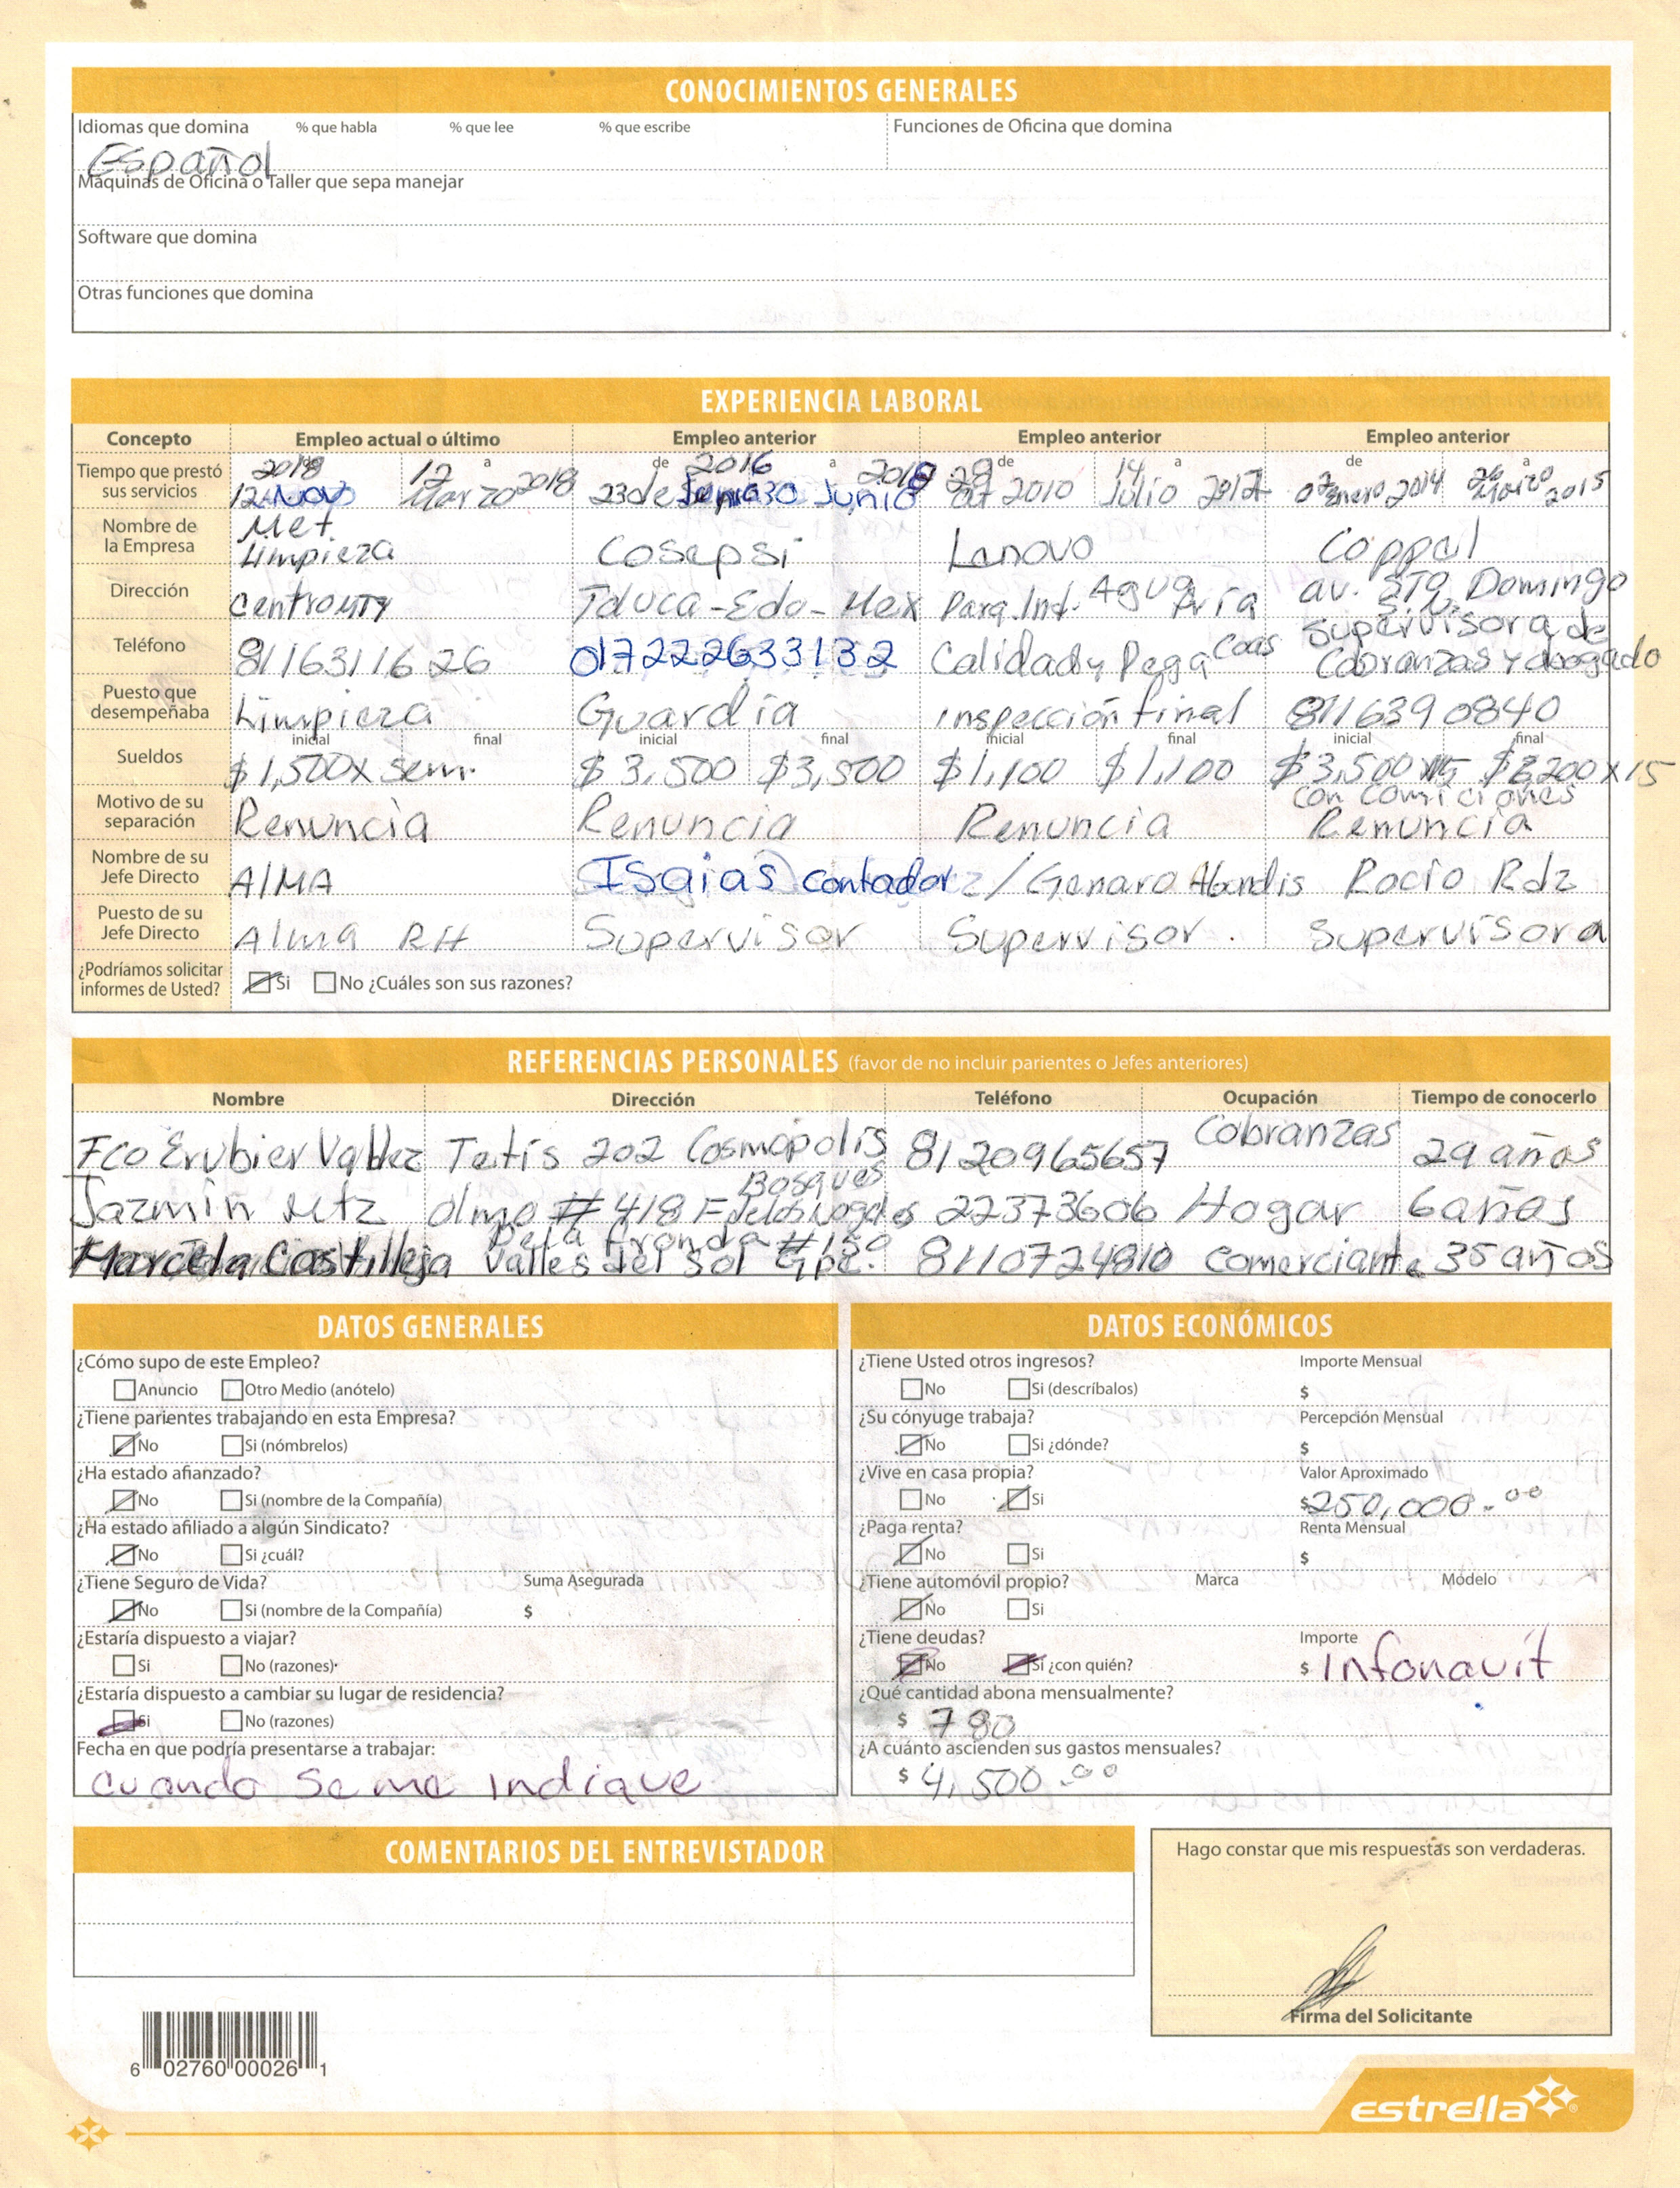 CONOCIMIENTOS GENERALES
Idiomas que domina % que habla % que lee % que escribe Funciones de Oficina que domina
Español
Máquinas de Oficina o Taller que sepa manejar
Software que domina
Otras funciones que domina
EXPERIENCIA LABORAL
Concepto Empleo actual o último Empleo anterior Empleo anterior Empleo anterior
Tiempo que prestó sus servicios a 12 Marzo 2018 de 2016 a de 2010 14 a Julio de enero 2014 a 2015
Nombre de la Empresa Met. Limpieza Cosepsi Lanovo Coppel
Dirección centro MTY Toluca-Edo-Mex Parq. Ind. Agua Fria av. STO. Domingo
Teléfono 8116311626 017222633132 Calidad y Pega Supervisora de Cobranzas y abogado
Puesto que desempeñaba Limpieza Guardia inspección final 8116390840
Sueldos inicial final inicial final inicial final inicial final
$1,500 x sem. $3,500 $3,500 $1,100 $1,100 $3,500 x15
con comiciones
Motivo de su separación Renuncia Renuncia Renuncia Renuncia
Nombre de su Jefe Directo AlMA Isaias contador / Genaro Rocío Rdz
Puesto de su Jefe Directo Alma RH Supervisor Supervisor. Supervisora
¿Podríamos solicitar informes de Usted? Si No ¿Cuáles son sus razones?
REFERENCIAS PERSONALES (favor de no incluir parientes o Jefes anteriores)
Nombre Dirección Teléfono Ocupación Tiempo de conocerlo
Fco Erubier Valdez Tetis 202 Cosmópolis 8120965657 Cobranzas 29 años
Jazmín Mtz olmo #418 F Bosques de los nogales 22373606 Hogar 6 años
Marcela Castilleja Valles del Sol Gpe. 8110724810 comerciante 35 años
DATOS GENERALES
¿Cómo supo de este Empleo?
Anuncio Otro Medio (anótelo)
¿Tiene parientes trabajando en esta Empresa?
No Si (nómbrelos)
¿Ha estado afianzado?
No Si (nombre de la Compañía)
¿Ha estado afiliado a algún Sindicato?
No Si ¿cuál?
¿Tiene Seguro de Vida? Suma Asegurada
No Si (nombre de la Compañía) $
¿Estaría dispuesto a viajar?
Si No (razones)
¿Estaría dispuesto a cambiar su lugar de residencia?
Si No (razones)
Fecha en que podría presentarse a trabajar:
cuando se me indique
DATOS ECONÓMICOS
¿Tiene Usted otros ingresos? Importe Mensual
No Si (descríbalos) $
¿Su cónyuge trabaja? Percepción Mensual
No Si ¿dónde? $
¿Vive en casa propia? Valor Aproximado
No Si $250,000.00
¿Paga renta? Renta Mensual
No Si $
¿Tiene automóvil propio? Marca Módelo
No Si
¿Tiene deudas? Importe
No Si ¿con quién? $ Infonavit
¿Qué cantidad abona mensualmente?
$ 780
¿A cuánto ascienden sus gastos mensuales?
$ 4,500.00
COMENTARIOS DEL ENTREVISTADOR
Hago constar que mis respuestas son verdaderas.
Firma del Solicitante
6 02760 00026 1
estrella